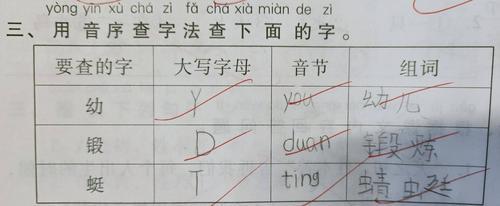 yòng yīn xù chá zì fǎ chá xià miàn de zì
三、用音序查字法查下面的字。
要查的字 大写字母 音节 组词
幼 Y you 幼儿
锻 D duan 锻炼
蜓 T ting 蜻蜓